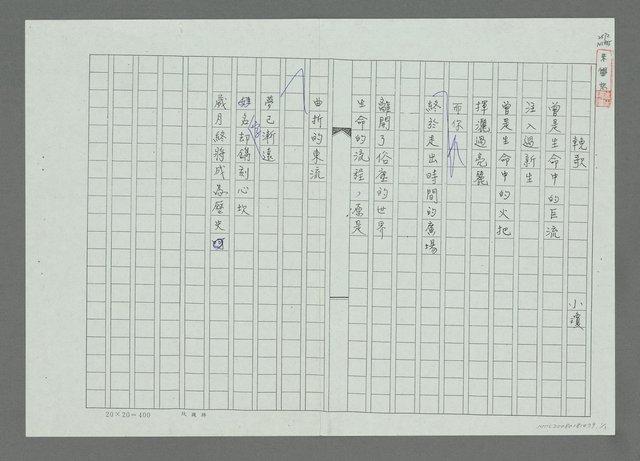 輓歌
小瓊
曾是生命中的巨流
注入過新生
曾是生命中的火把
揮灑過亮麗
而你
終於走出時間的廣場
離開了俗塵的世界
生命的流程，原是
曲折的東流
夢已漸遠
姓名却鐫刻心坎
歲月終將成為歷史
20×20=400